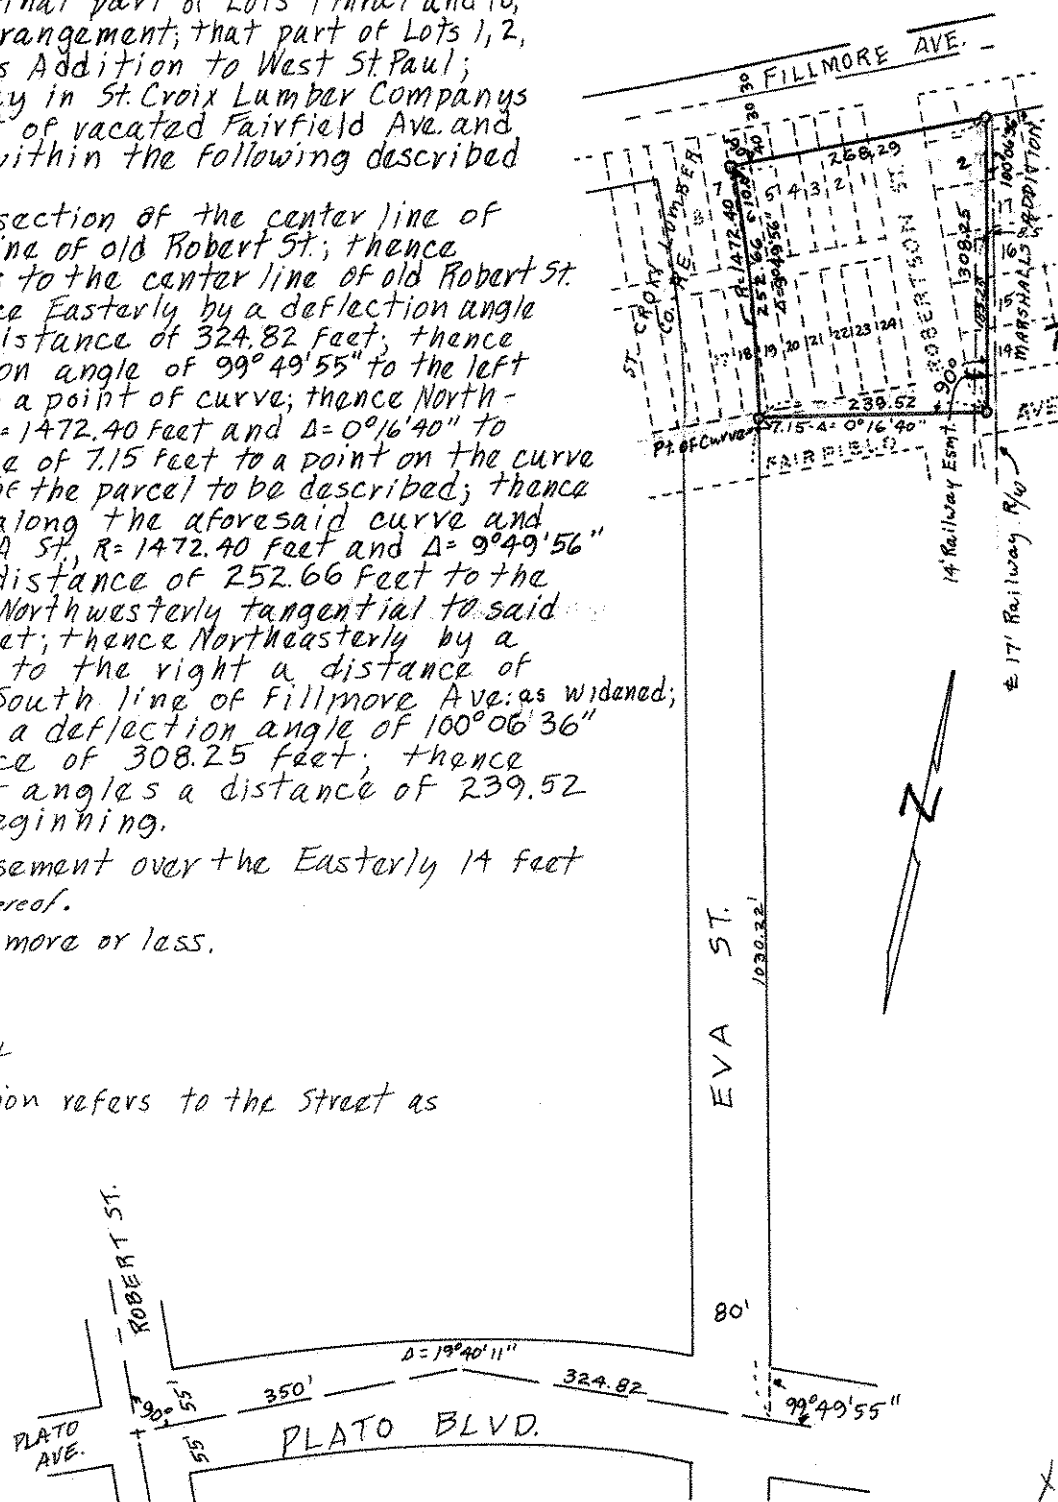 that part of Lots 1 thru 7 and 18,
rangement; that part of Lots 1, 2,
s Addition to West St. Paul;
y in St. Croix Lumber Companys
of vacated Fairfield Ave. and
within the following described
section of the center line of
ine of old Robert St.; thence
to the center line of old Robert St.
ce Easterly by a deflection angle
istance of 324.82 feet; thence
on angle of 99°49'55" to the left
a point of curve; thence North-
= 1472.40 feet and Δ= 0°16'40" to
e of 7.15 feet to a point on the curve
of the parcel to be described; thence
along the aforesaid curve and
A St., R= 1472.40 feet and Δ= 9°49'56"
distance of 252.66 feet to the
Northwesterly tangential to said
et; thence Northeasterly by a
to the right a distance of
South line of Fillmore Ave. as widened;
a deflection angle of 100°06'36"
ce of 308.25 feet; thence
t angles a distance of 239.52
eginning.
sement over the Easterly 14 feet
ereof.
more or less.
ion refers to the Street as
FILLMORE AVE.
30 30
40
268.29
100°06'36"
2
7
5 4 3 2 1
ST. CROIX LUMBER
CO. RE
R=1472.40
252.66
Δ=9°49'56"
ROBERTSON ST.
308.25
MARSHALLS ADDITION
6
5
4
18 19 20 21 22 23 24
90°
239.52
Pt. of Curve
7.15-Δ= 0°16'40"
FAIRFIELD
AVE
14' Railway Esmt.
℄ 17' Railway R/W
N
EVA ST.
1030.22'
80'
ROBERT ST.
Δ=19°40'11"
350'
324.82
99°49'55"
90°
55' 55'
PLATO AVE.
PLATO BLVD.